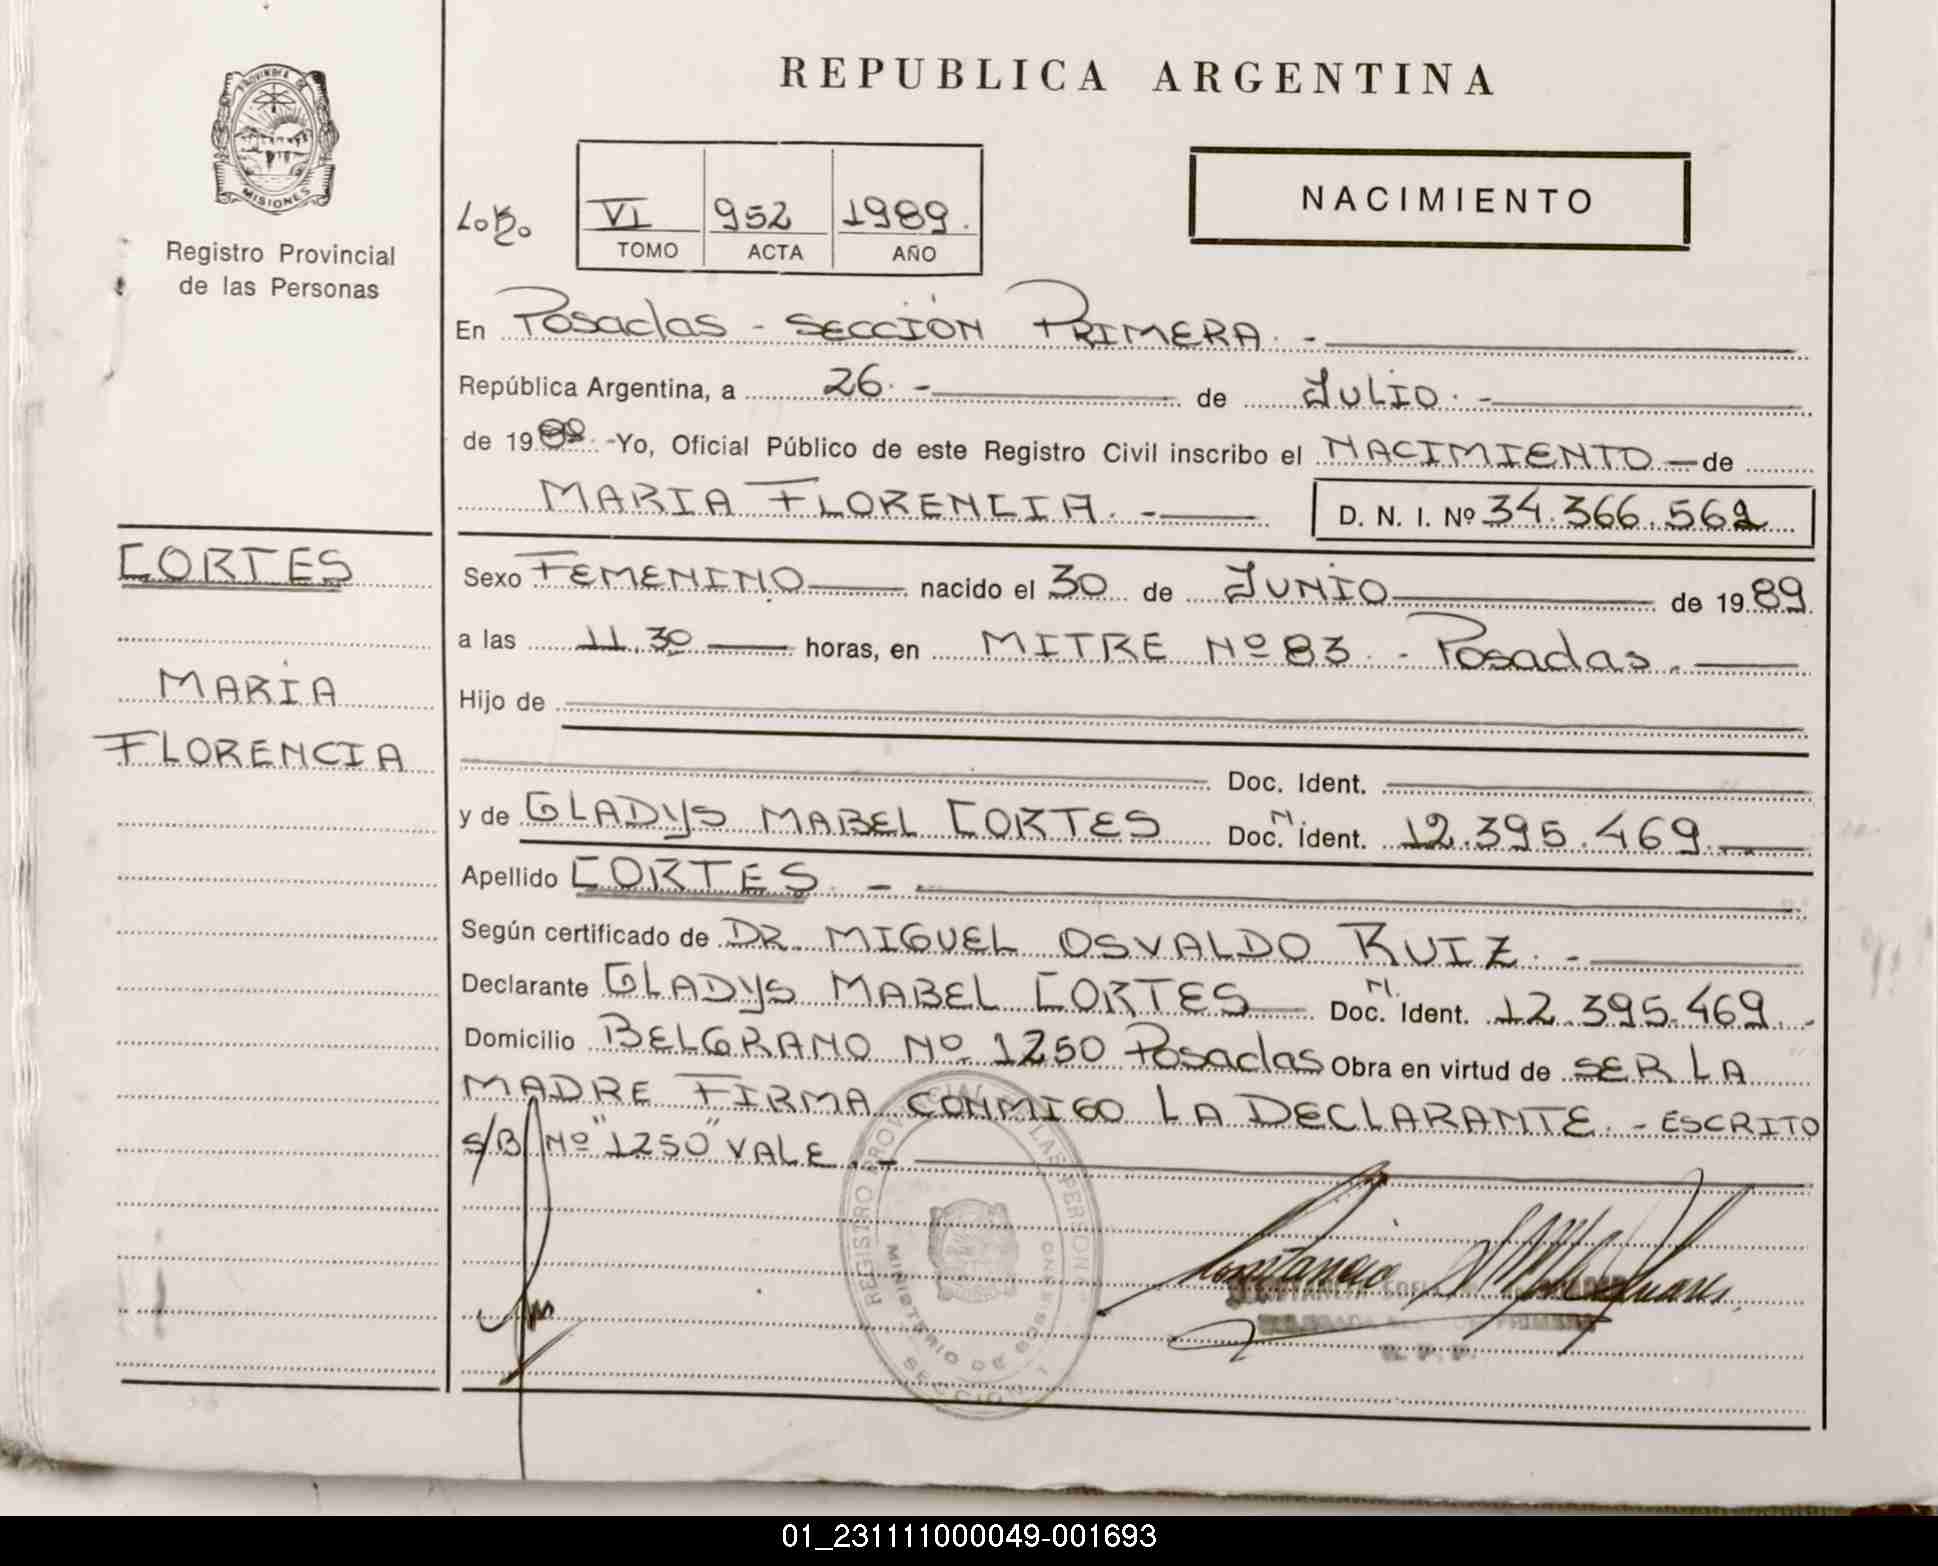 REPUBLICA ARGENTINA
PROVINCIA DE
MISIONES
Registro Provincial
de las Personas
VI 952 1989.
TOMO ACTA AÑO
NACIMIENTO
En Posadas - SECCIÓN PRIMERA. -
República Argentina, a 26. - de JULIO. -
de 1989. - Yo, Oficial Público de este Registro Civil inscribo el NACIMIENTO - de
MARIA FLORENCIA. - D. N. I. Nº 34.366.562
CORTES
MARÍA
FLORENCIA
Sexo FEMENINO nacido el 30 de JUNIO de 1989.
a las 11.30 horas, en MITRE Nº 83. - Posadas.
Hijo de
Doc. Ident.
y de GLADYS MABEL CORTES Doc. N. Ident. 12.395.469.
Apellido CORTES. -
Según certificado de DR. MIGUEL OSVALDO RUIZ. -
Declarante GLADYS MABEL CORTES Doc. N. Ident. 12.395.469.
Domicilio BELGRANO Nº 1250 Posadas Obra en virtud de SER LA
MADRE FIRMA CONMIGO LA DECLARANTE. - ESCRITO
S/B Nº "1250" VALE. -
REGISTRO PROVINCIAL DE LAS PERSONAS
MINISTERIO DE GOBIERNO
SECCION 1
01_231111000049-001693